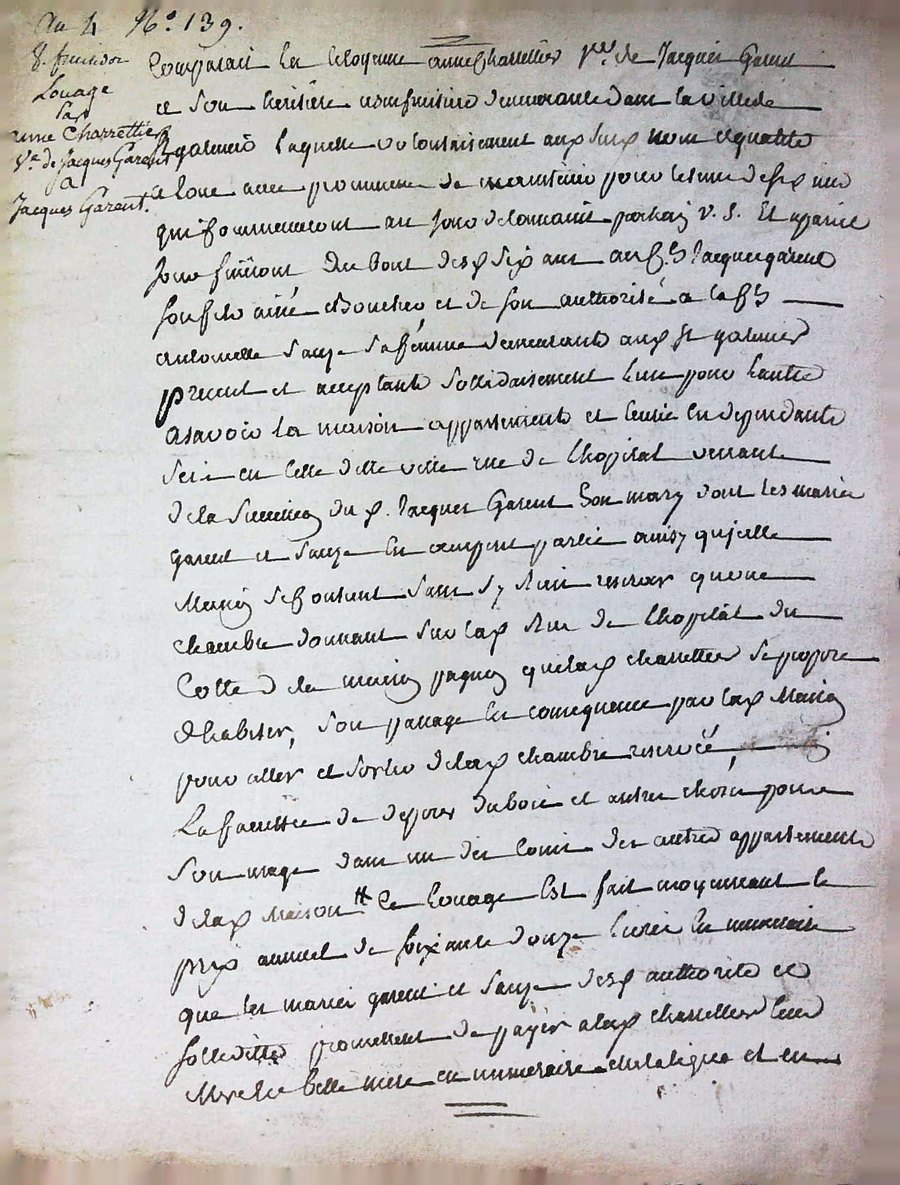 an 4 N.º 139.
8. fructidor
Louage
par
anne Charrettier
Vᵉ. de Jacques Garent
a
Jacques Garent.
Comparait la Citoyenne anne Charrettier Vᵉ. de Jacques Garent
et son heritiere demeurante dans la ville de
St galmier laquelle volontairement aux nom et qualité
a loué avec promesse de maintenir pour le terme de six ans
qui commenceront au jour de v. s. Et a pareil
jour finiront Du bout desd. six ans aud. Jacques garent
son fils ainé Boucher et de son authorisé a
antoinette Sauze sa femme demeurante aud. St galmier
present et acceptants sollidairement l'un pour l'autre
asavoir la maison appartements et dependants
en cette ditte ville rue de l'hopital venant
de la succession du d. Jacques Garent son mary dont les mariés
garent et Sauze en occupent partie ainsy qu'icelle
Maison sans s'y rien reserver qu'une
chambre donnant sur lad. Rue de l'hopital du
Cotté de la maison que lad. charrettier se propose
d'habiter, son passage en consequence par lad. Maison
pour aller et sortir de lad. chambre reservée,
La faculté de deposer du bois et autres choses pour
son usage dans un des coins des autres appartements
de lad. Maison tt Ce Louage Est fait moyennant le
prix annuel de soixante douze livres en numeraire
que les mariés garent et Sauze desd. authorité et
sollidité promettent de payer a lad. charrettier leur
Mere et belle mere en numeraire et en